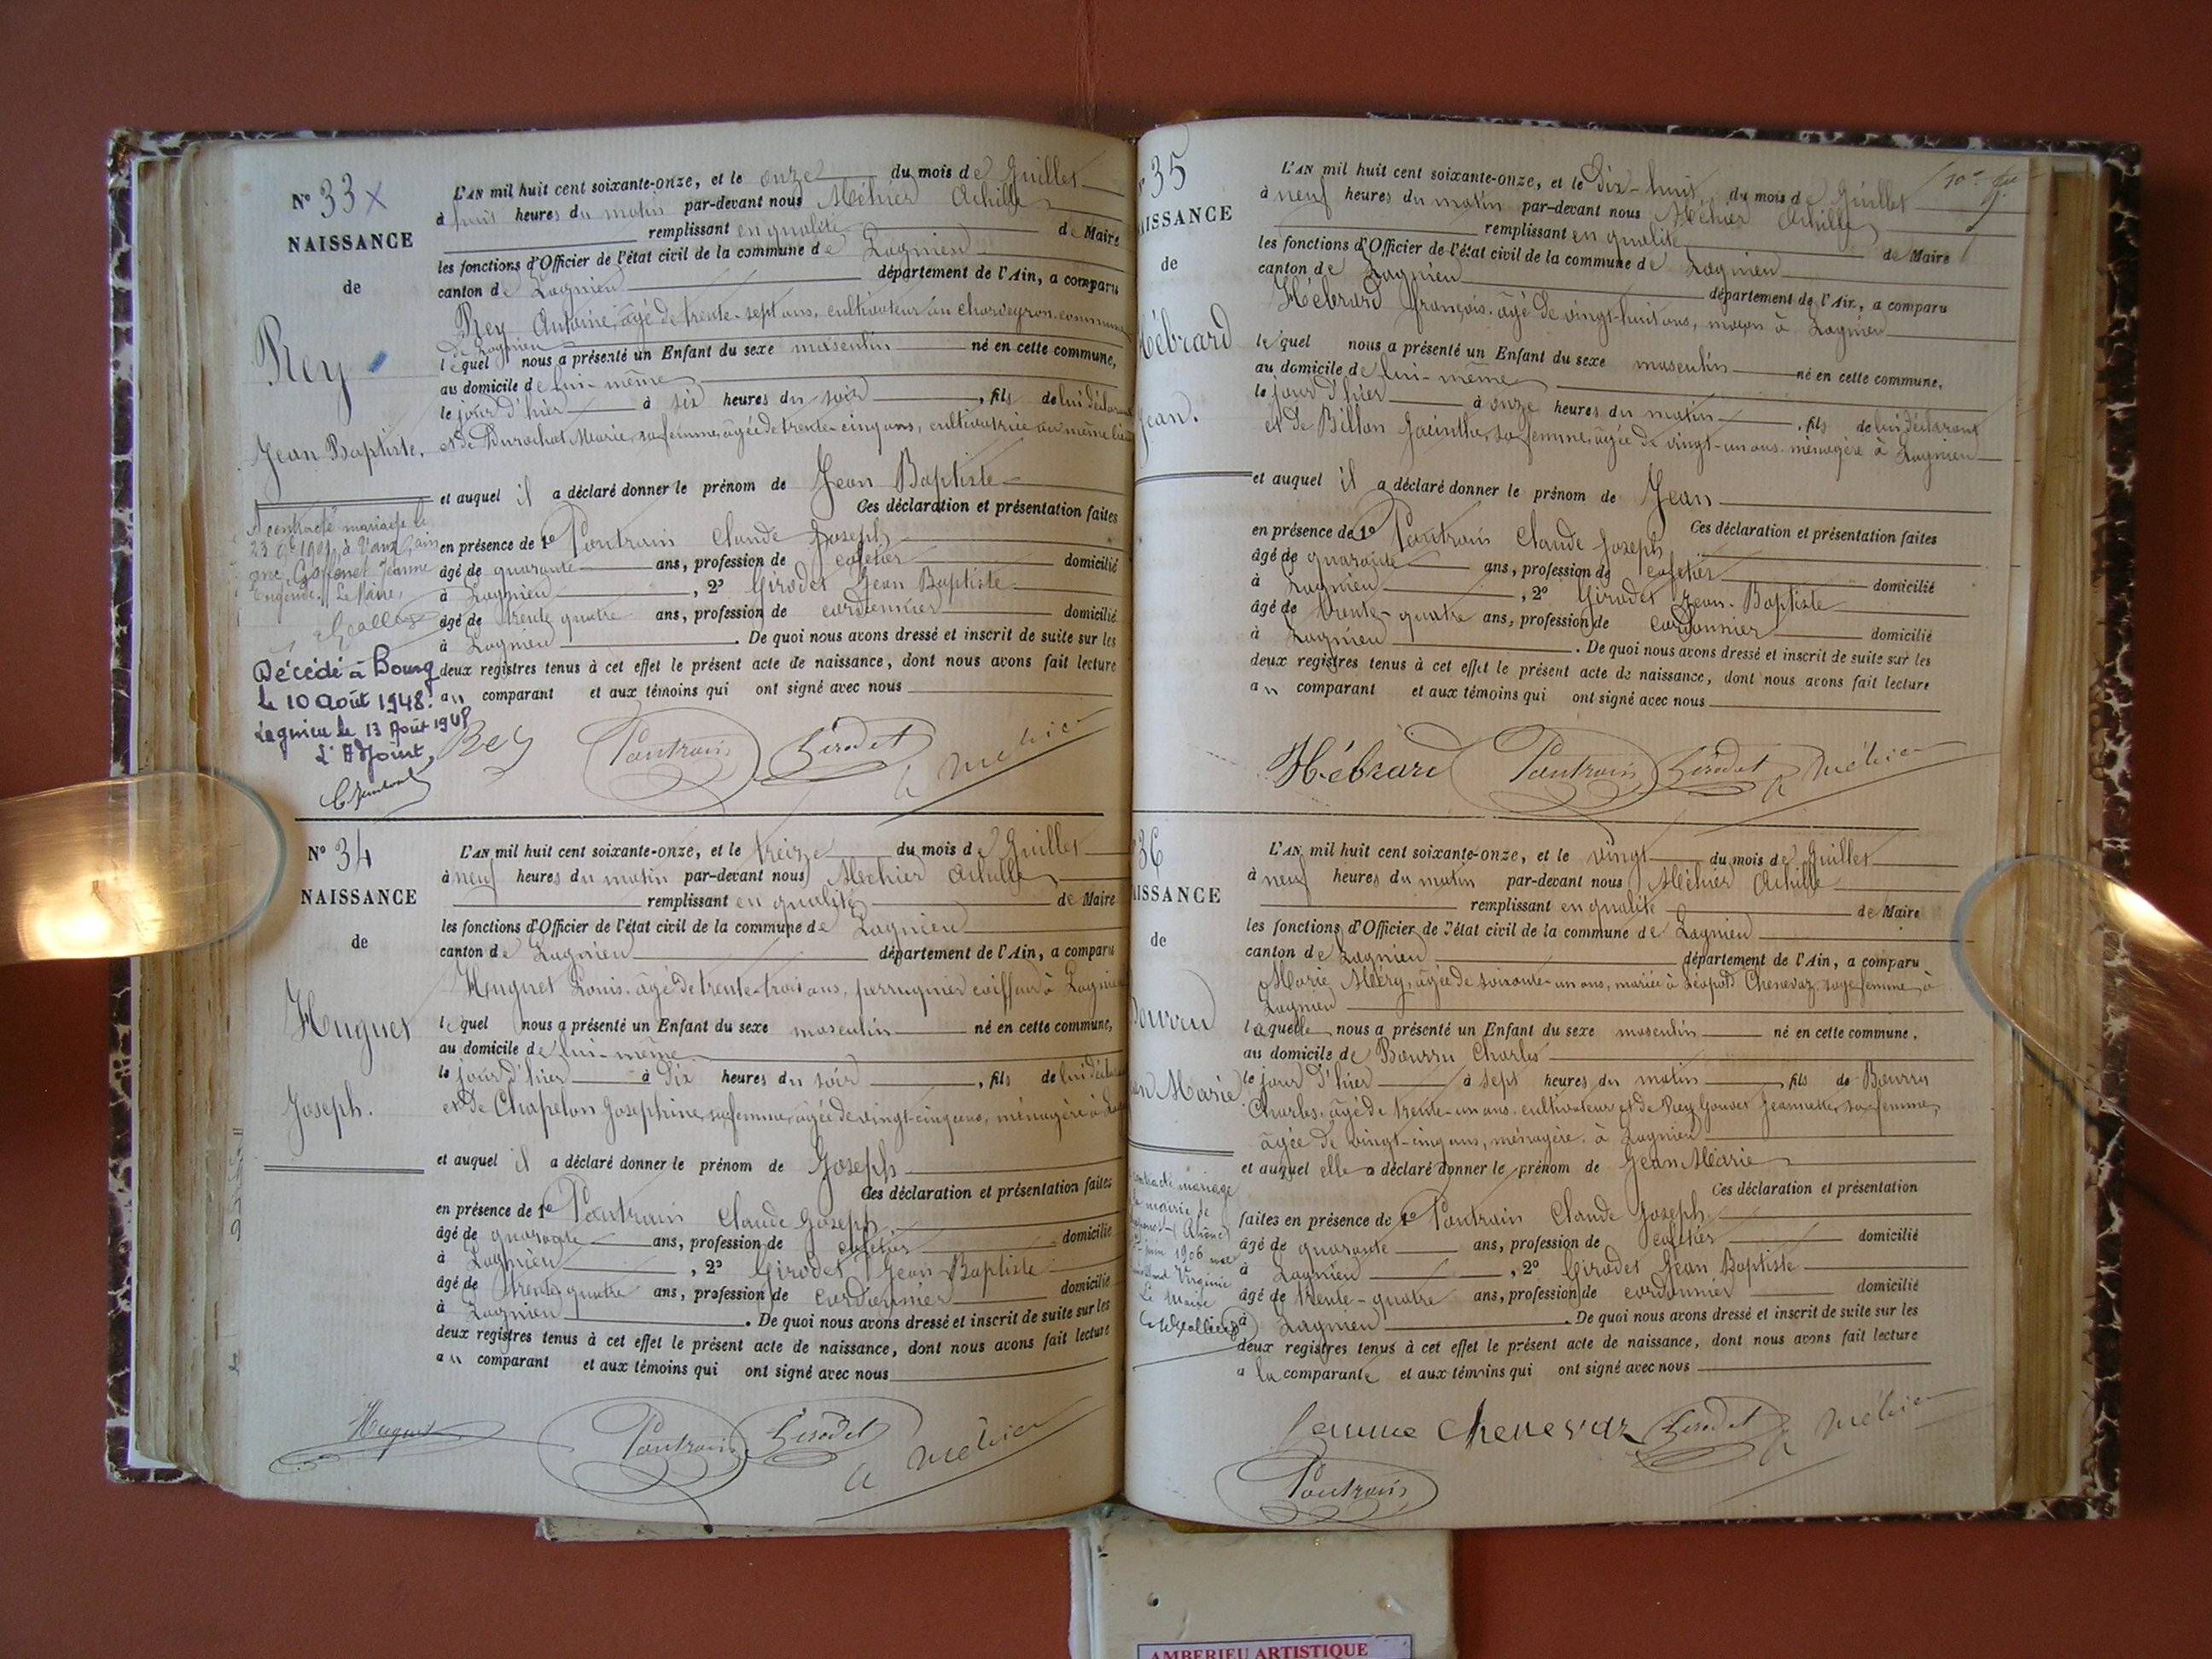 N° 33
NAISSANCE
de
Rey
Jean Baptiste.
A contracté mariage le
23 1901, à Vaux, Ain
avec Jeanne
Eugénie. Le Maire,
Décédé à Bourg
le 10 Août 1948.
Lagnieu le 13 Août 1948
L'Adjoint,
L'AN mil huit cent soixante-onze, et le onze du mois de Juillet
à huit heures du matin par-devant nous Méhier Achille
remplissant en qualité de Maire
les fonctions d'Officier de l'état civil de la commune de Lagnieu
canton de Lagnieu département de l'Ain, a comparu
Rey Antoine, âgé de trente-sept ans, cultivateur au Charveyron commune
de Lagnieu
lequel nous a présenté un Enfant du sexe masculin né en cette commune,
au domicile de lui-même
le jour d'hier à six heures du soir, fils de lui déclarant
et de Durochat Marie, sa femme, âgée de trente-cinq ans, cultivatrice au même lieu
et auquel il a déclaré donner le prénom de Jean Baptiste
Ces déclaration et présentation faites
en présence de 1° Pontrain Claude Joseph
âgé de quarante ans, profession de cafetier domicilié
à Lagnieu, 2° Girodet Jean Baptiste
âgé de trente quatre ans, profession de cordonnier domicilié
à Lagnieu. De quoi nous avons dressé et inscrit de suite sur les
deux registres tenus à cet effet le présent acte de naissance, dont nous avons fait lecture
au comparant et aux témoins qui ont signé avec nous
Rey Pontrain Girodet A Méhier
N° 34
NAISSANCE
de
Huguet
Joseph.
L'AN mil huit cent soixante-onze, et le treize du mois de Juillet
à neuf heures du matin par-devant nous Méhier Achille
remplissant en qualité de Maire
les fonctions d'Officier de l'état civil de la commune de Lagnieu
canton de Lagnieu département de l'Ain, a comparu
Huguet Louis, âgé de trente-trois ans, perruquier coiffeur à Lagnieu
lequel nous a présenté un Enfant du sexe masculin né en cette commune,
au domicile de lui-même
le jour d'hier à dix heures du soir, fils de lui déclarant
et de Chapelon Josephine, sa femme, âgée de vingt-cinq ans, ménagère à
et auquel il a déclaré donner le prénom de Joseph
Ces déclaration et présentation faites
en présence de 1° Pontrain Claude Joseph
âgé de quarante ans, profession de cafetier domicilié
à Lagnieu, 2° Girodet Jean Baptiste
âgé de trente quatre ans, profession de cordonnier domicilié
à Lagnieu. De quoi nous avons dressé et inscrit de suite sur les
deux registres tenus à cet effet le présent acte de naissance, dont nous avons fait lecture
au comparant et aux témoins qui ont signé avec nous
Huguet Pontrain Girodet A Méhier
35
NAISSANCE
de
Hébrard
Jean.
L'AN mil huit cent soixante-onze, et le dix-huit du mois de Juillet
à neuf heures du matin par-devant nous Méhier Achille
remplissant en qualité de Maire
les fonctions d'Officier de l'état civil de la commune de Lagnieu
canton de Lagnieu département de l'Ain, a comparu
Hébrard François, âgé de vingt-huit ans, maçon à Lagnieu
lequel nous a présenté un Enfant du sexe masculin né en cette commune,
au domicile de lui-même
le jour d'hier à onze heures du matin, fils de lui déclarant
et de Billon Jacinthe, sa femme, âgée de vingt-un ans, ménagère à Lagnieu
et auquel il a déclaré donner le prénom de Jean
Ces déclaration et présentation faites
en présence de 1° Pontrain Claude Joseph
âgé de quarante ans, profession de cafetier domicilié
à Lagnieu, 2° Girodet Jean-Baptiste
âgé de trente-quatre ans, profession de cordonnier domicilié
à Lagnieu. De quoi nous avons dressé et inscrit de suite sur les
deux registres tenus à cet effet le présent acte de naissance, dont nous avons fait lecture
au comparant et aux témoins qui ont signé avec nous
Hébrard Pontrain Girodet A Méhier
36
NAISSANCE
de
Bourru
Jean Marie
contracté mariage
la mairie de
(Rhône)
juin 1906 avec
Virginie
Le Maire
L'AN mil huit cent soixante-onze, et le vingt du mois de Juillet
à neuf heures du matin par-devant nous Méhier Achille
remplissant en qualité de Maire
les fonctions d'Officier de l'état civil de la commune de Lagnieu
canton de Lagnieu département de l'Ain, a comparu
Marie Méry, âgée de soixante-un ans, mariée à Léopold Chenevaz, sage femme, à
Lagnieu
laquelle nous a présenté un Enfant du sexe masculin né en cette commune,
au domicile de Bourru Charles
le jour d'hier à sept heures du matin, fils de Bourru
Charles, âgé de trente-un ans, cultivateur et de Rey Gouvet Jeannette, sa femme,
âgée de vingt-cinq ans, ménagère, à Lagnieu
et auquel elle a déclaré donner le prénom de Jean Marie
Ces déclaration et présentation
faites en présence de 1° Pontrain Claude Joseph
âgé de quarante ans, profession de cafetier domicilié
à Lagnieu, 2° Girodet Jean Baptiste
âgé de trente-quatre ans, profession de cordonnier domicilié
à Lagnieu. De quoi nous avons dressé et inscrit de suite sur les
deux registres tenus à cet effet le présent acte de naissance, dont nous avons fait lecture
a la comparante et aux témoins qui ont signé avec nous
femme Chenevaz Girodet A Méhier
Pontrain
AMBERIEU ARTISTIQUE